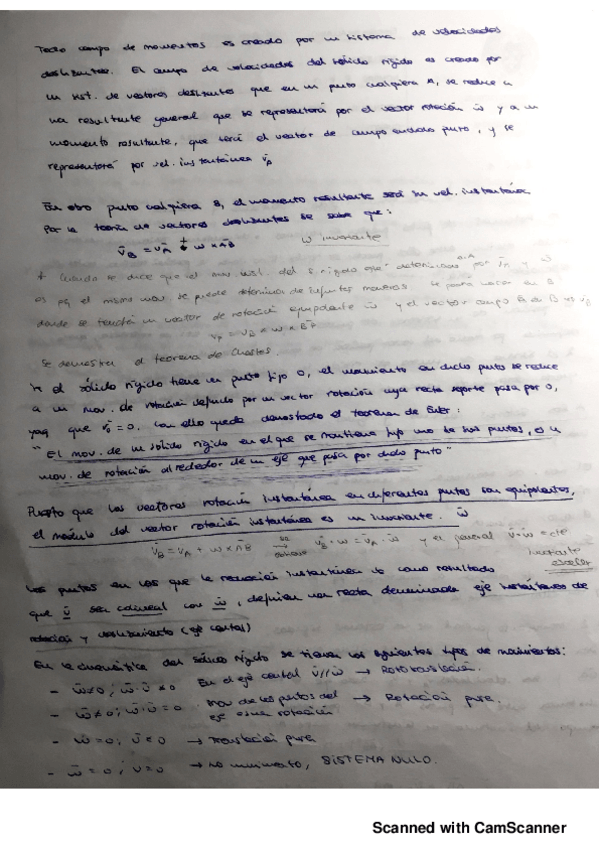 Todo campo de momentos es creado por un sistema de velocidades
deslizantes. El campo de velocidades del sólido rígido es creado por
un sist. de vectores deslizantes que en un punto cualquiera A, se reduce a
una resultante general que se representará por el vector rotación ω̄ y a un
momento resultante, que será el vector de campo en dicho punto, y se
representará por vel. instantánea v̄_A
En otro punto cualquiera B, el momento resultante será su vel. instantánea
Por la teoría de vectores deslizantes se sabe que:
v̄_B = v̄_A + ω × AB ω invariante
Cuando se dice que el mov. del s. rígido que determinado por v̄_A y ω̄
es pq el mismo mov. se puede determinar de infinitas maneras. Se podría en B
donde se tendrá un vector de rotación equipolente ω̄ y el vector campo B v̄_B
v_P = v_B + ω × BP
Se demuestra el teorema de Chasles.
Si el sólido rígido tiene un punto fijo O, el movimiento en dicho punto se reduce
a un mov. de rotación definido por un vector rotación cuya recta soporte pasa por O,
ya que v̄_0 = 0. Con ello queda demostrado el teorema de Euler:
"El mov. de un sólido rígido en el que se mantiene fijo uno de sus puntos, es un
mov. de rotación alrededor de un eje que pasa por dicho punto"
Puesto que los vectores rotación instantánea en diferentes puntos son equipolentes,
el módulo del vector rotación instantánea es un invariante. ω̄
v̄_B = v̄_A + ω × AB se obtiene v̄_B · ω = v̄_A · ω̄ y en general v̄·ω = cte
invariante escalar
Los puntos en los que la reducción instantánea da como resultado
que v̄ sea colineal con ω̄, definen una recta denominada eje instantáneo de
rotación y deslizamiento (eje central)
En la cinemática del sólido rígido se tienen los siguientes tipos de movimientos:
- ω̄≠0; ω̄·v̄ ≠ 0 En el eje central v̄//ω̄ → Rototraslación.
- ω̄≠0; ω̄·v̄ = 0 mov de los puntos del eje es una rotación → Rotación pura.
- ω̄=0; v̄≠0 → Traslación pura
- ω̄=0; v=0 → no movimiento, SISTEMA NULO.
Scanned with CamScanner